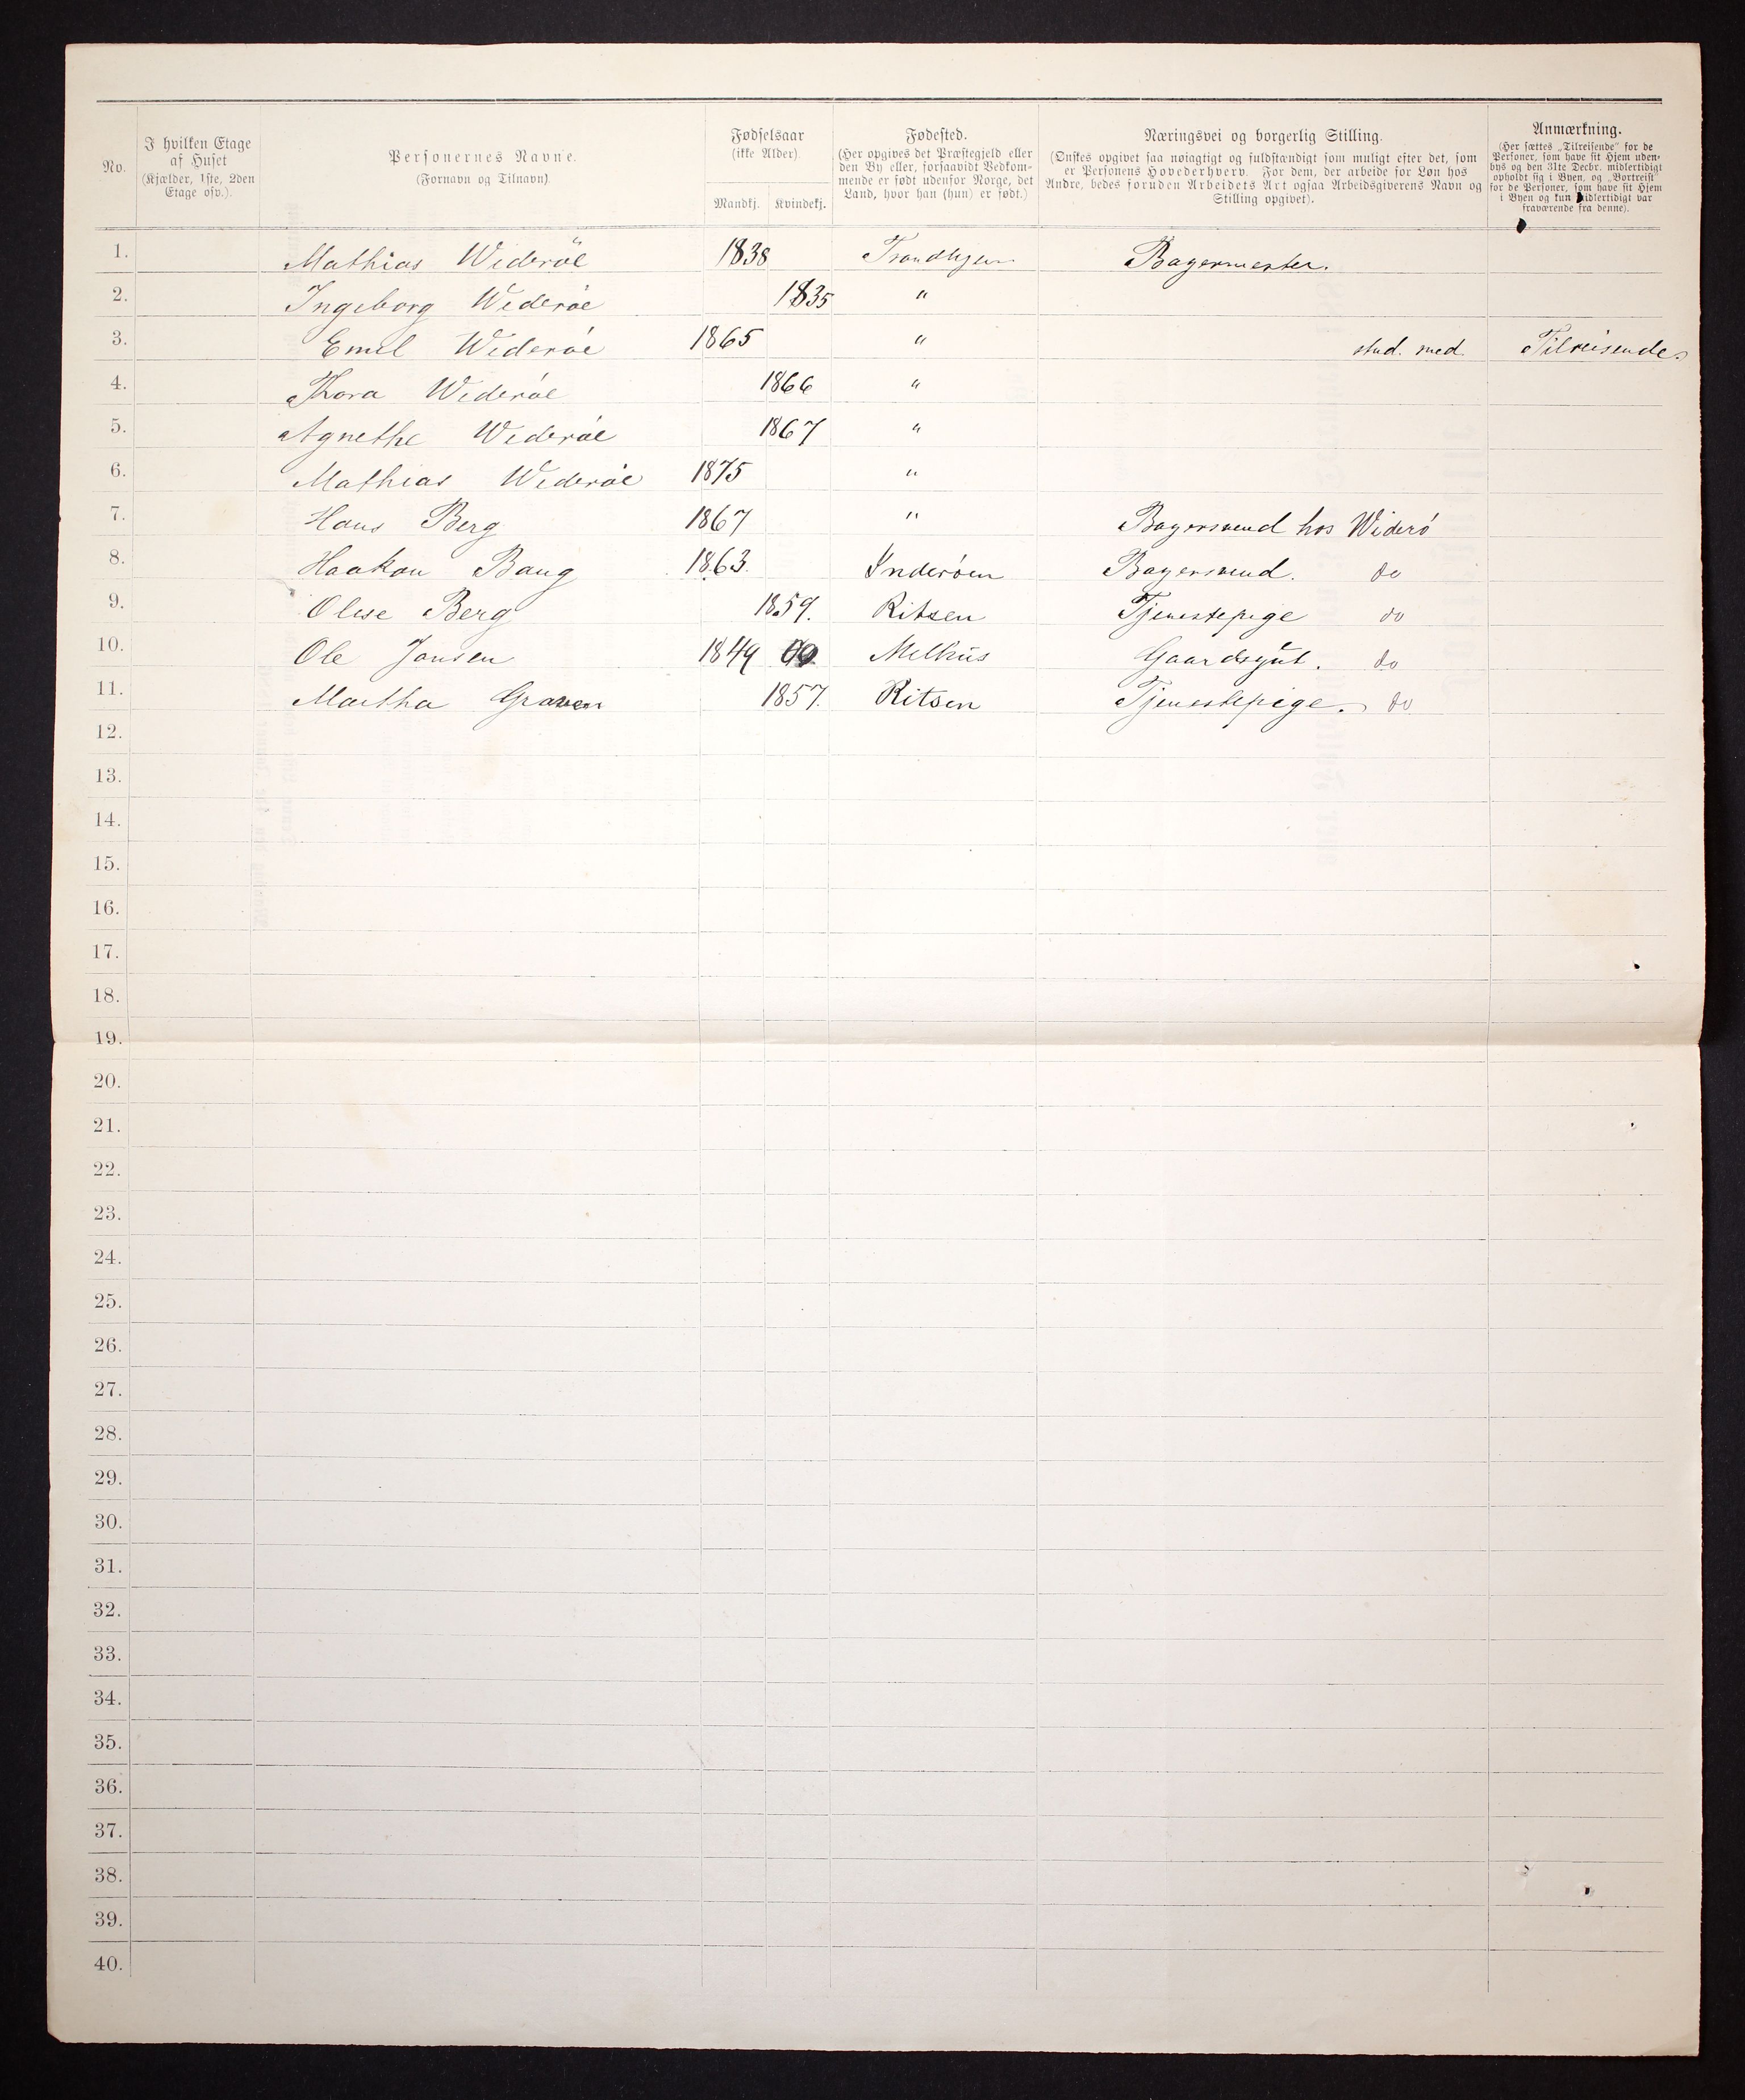 No.
I hvilken Etage
af Huset
(Kjælder, 1ste, 2den
Etage osv.).
Personernes Navne.
(Fornavn og Tilnavn).
Fødselsaar
(ikke Alder)
Mandkj. Kvindekj.
Fødested.
(Her opgives det Præstegjeld eller
den By eller, forsaavidt Vedkom-
mende er født udenfor Norge, det
Land, hvor han (hun) er født.)
Næringsvei og borgerlig Stilling.
(Ønskes opgivet saa nøiagtigt og fuldstændigt som muligt efter det, som
er Personens Hovederhverv. For dem, der arbeide for Løn hos
Andre, bedes foruden Arbeidets Art ogsaa Arbeidsgiverens Navn og
Stilling opgivet).
Anmærkning.
(Her sættes „Tilreisende" for de
Personer, som have sit Hjem uden-
bys og den 31te Decbr. midlertidigt
opholdt sig i Byen, og „Bortreist"
for de Personer, som have sit Hjem
i Byen og kun midlertidigt var
fraværende fra denne).
1. Mathias Widerøe 1838 Trondhjem Bagermester.
2. Ingeborg Widerøe 1835 "
3. Emil Widerøe 1865 " stud. med. Tilreisende
4. Thora Widerøe 1866 "
5. Agnethe Widerøe 1867 "
6. Mathias Widerøe 1875 "
7. Hans Berg 1867 " Bagersvend hos Widerø
8. Haakon Bang 1863 Inderøen Bagersvend. do
9. Oline Berg 1859. Ritsen Tjenestepige do
10. Ole Jonsen 1849 Melhus Gaardsgut. do
11. Martha Graven 1857. Ritsen Tjenestepige. do
12.
13.
14.
15.
16.
17.
18.
19.
20.
21.
22.
23.
24.
25.
26.
27.
28.
29.
30.
31.
32.
33.
34.
35.
36.
37.
38.
39.
40.